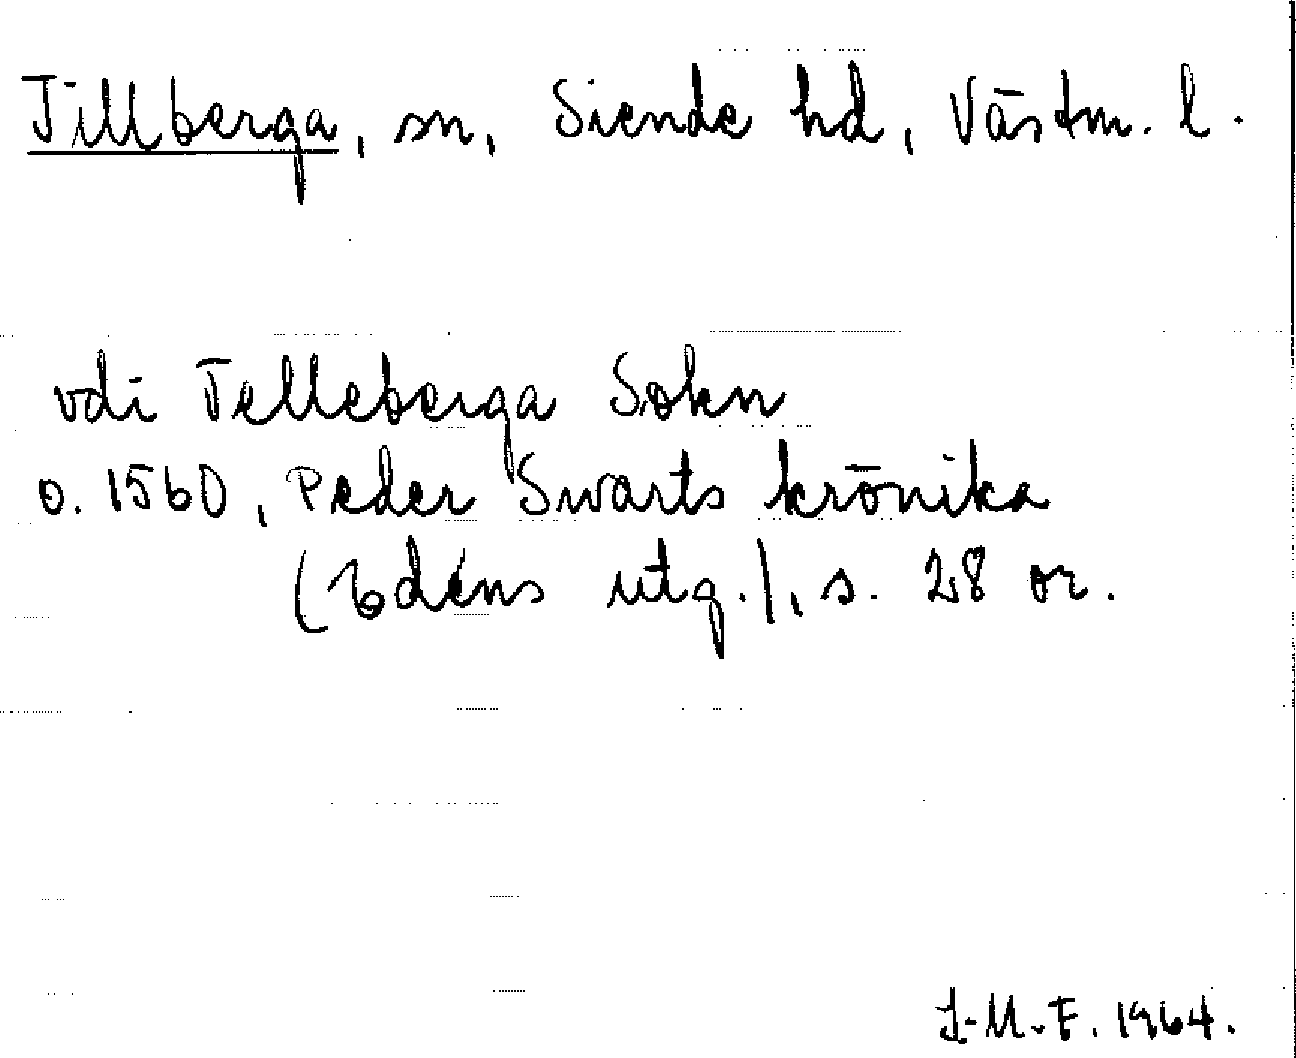 Tillberga, sn, Siende hd, Västm. l.
vdi Telleberga Sokn
o. 1560, Peder Swarts krönika
(Edéns utg.), s. 28 or.
I-M.F. 1964.